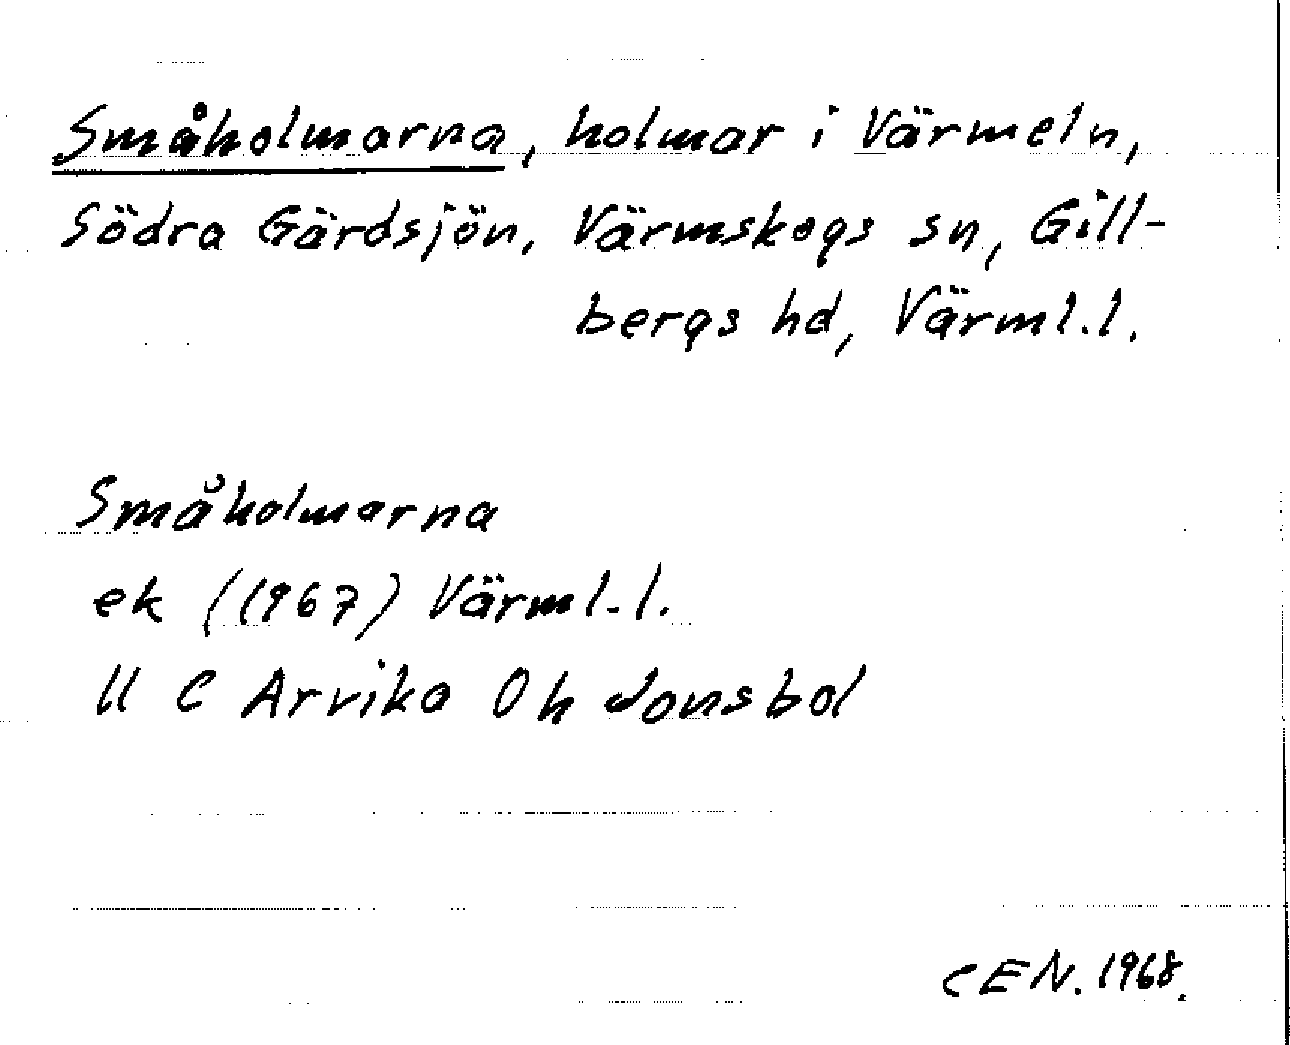 Småholmarna, holmar i Värmeln,
Södra Gärdsjön, Värmskogs sn, Gill-
bergs hd, Värml.l.
Småholmarna
ek (1967) Värml.l.
11 C Arvika 0h Jonsbol
CEN. 1968.